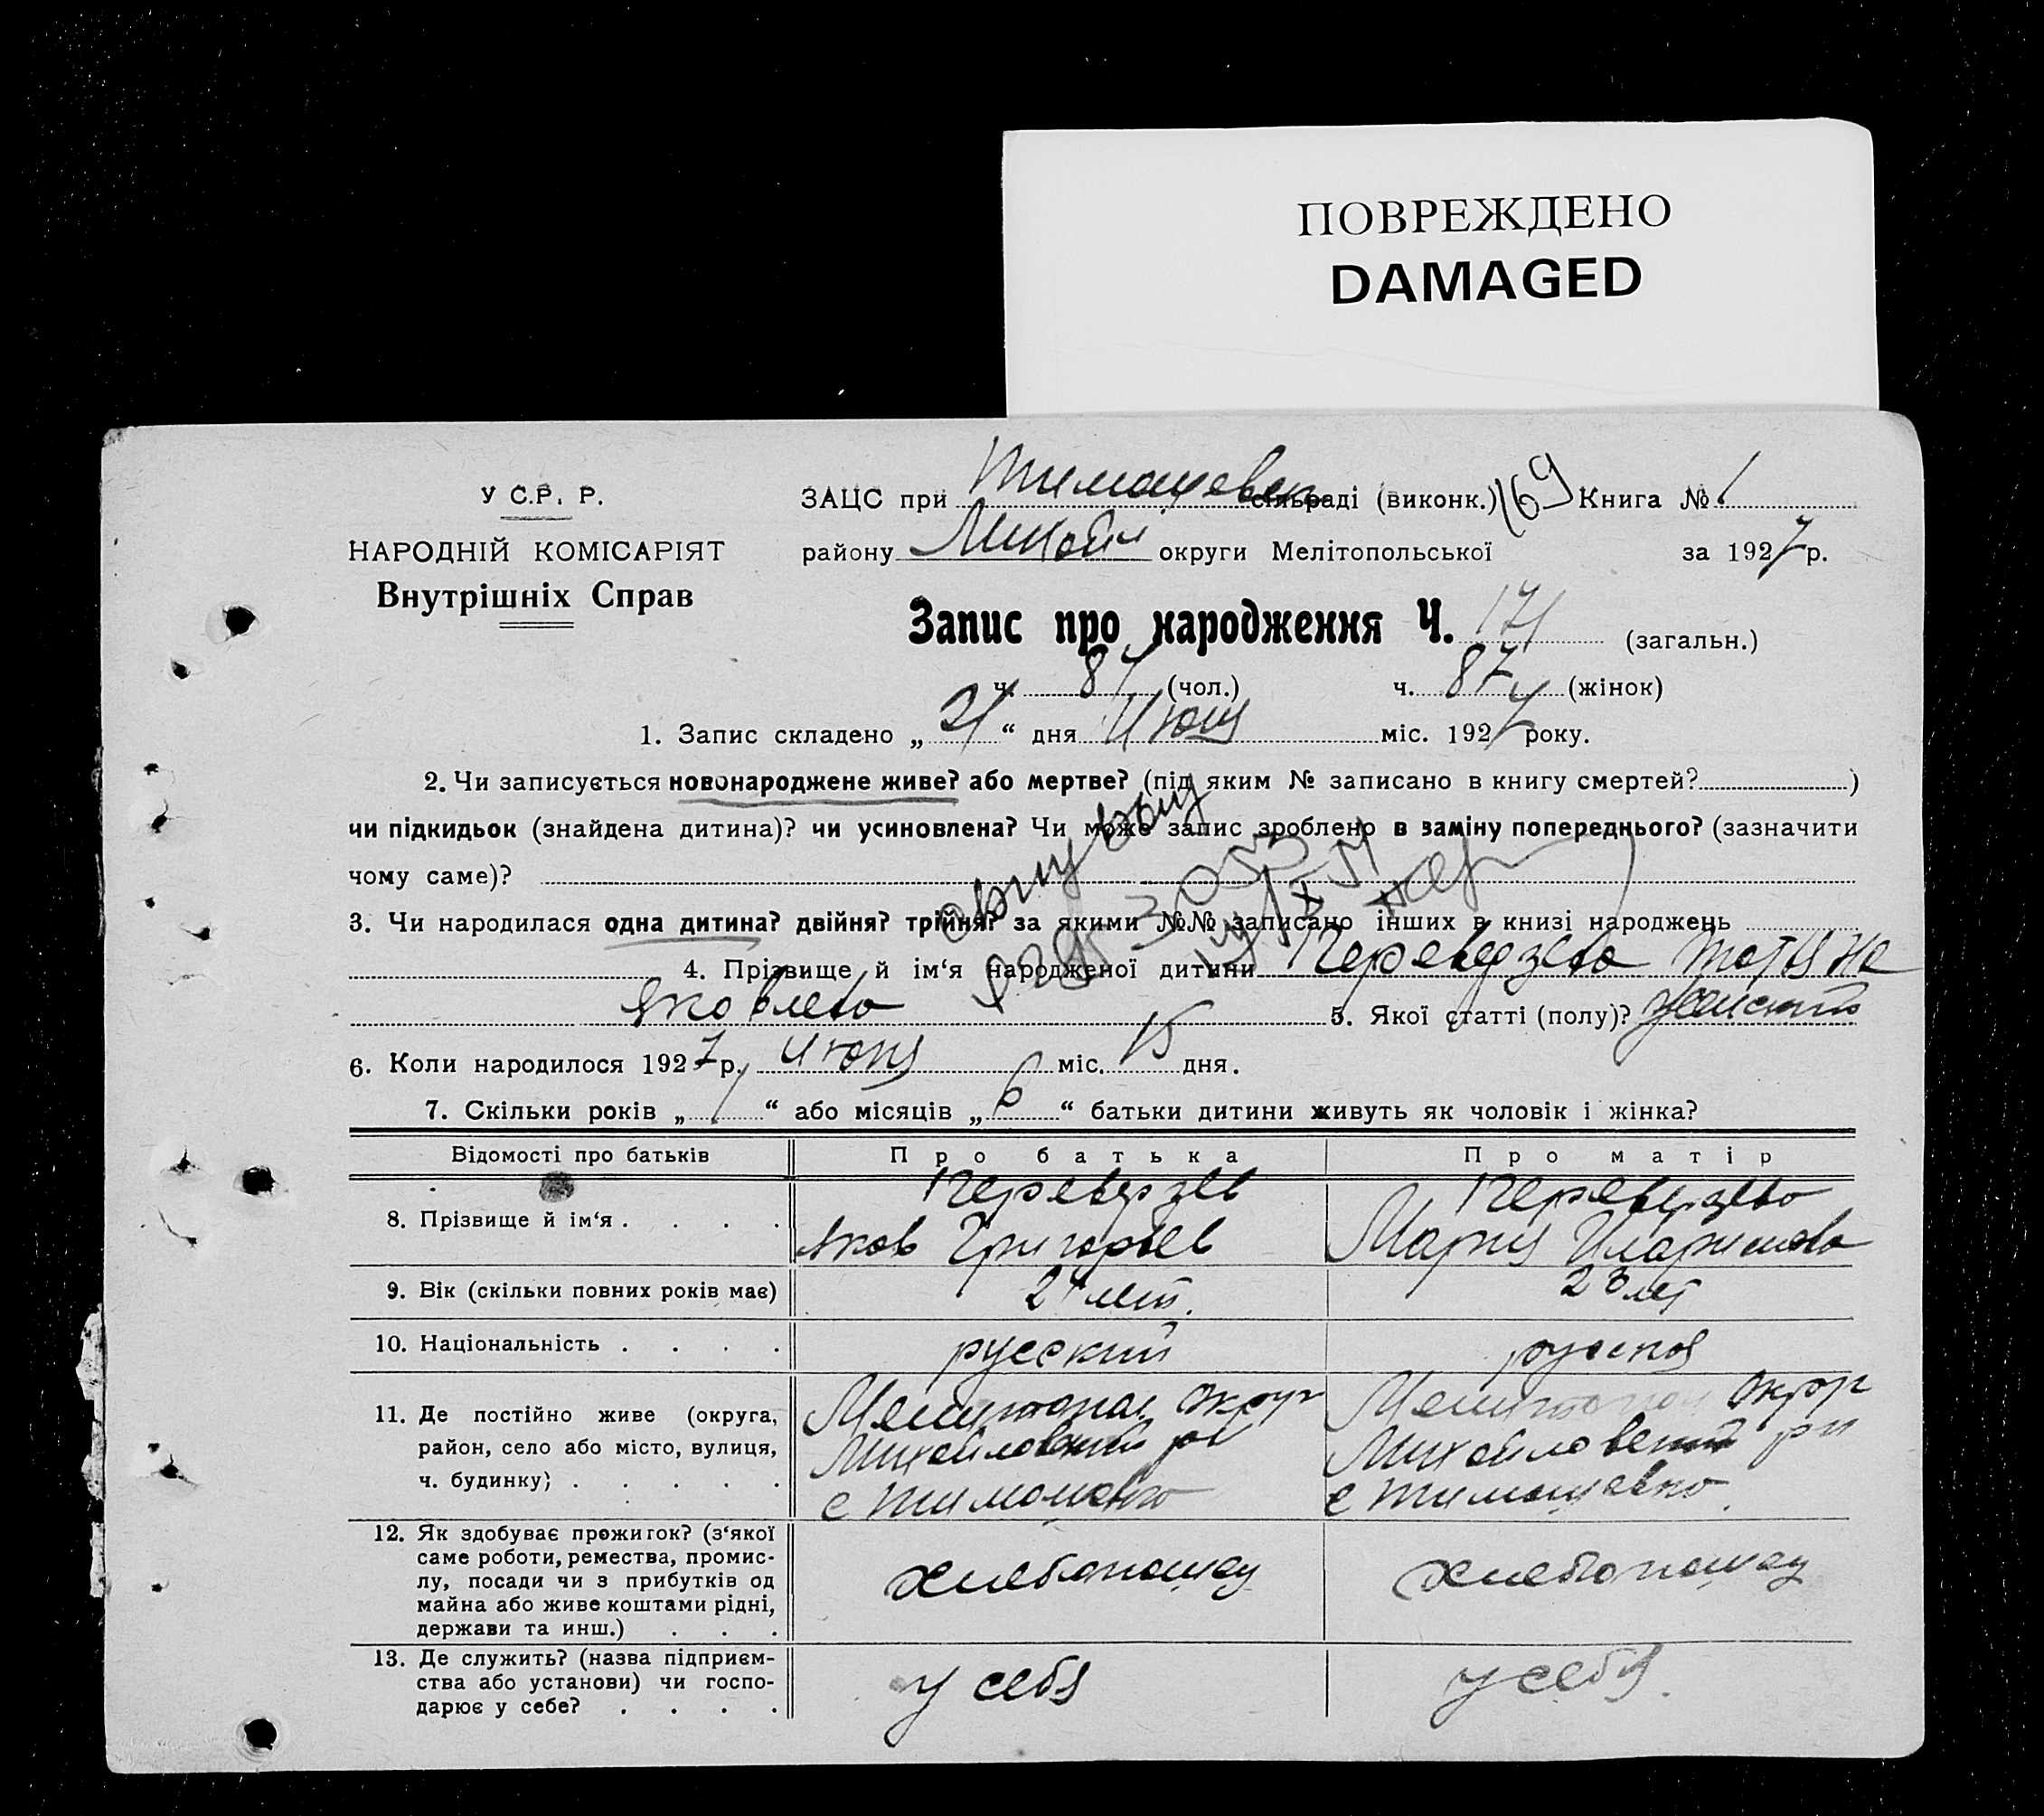 ПОВРЕЖДЕНО
DAMAGED
У С.Р. Р.
НАРОДНІЙ КОМІСАРІЯТ
Внутрішніх Справ
ЗАЦС при Тимошевск сільраді (виконк.) 169 Книга № 1
району Михайл округи Мелітопольської за 1927 р.
Запис про народження Ч. 171 (загальн.)
ч. 84 (чол.) ч. 87 (жінок)
1. Запис складено „ 21 “ дня Июня міс. 1927 року.
2. Чи записується новонароджене живе? або мертве? (під яким № записано в книгу смертей? )
чи підкидьок (знайдена дитина)? чи усиновлена? Чи може запис зроблено в заміну попереднього? (зазначити
чому саме)?
3. Чи народилася одна дитина? двійня? трійня? за якими №№ записано інших в книзі народжень
4. Прізвище й ім‘я народженої дитини Переверзева Татяна
Яковлева 5. Якої статті (полу)? женский
6. Коли народилося 1927 р. Июня 6 міс. 15 дня.
7. Скільки років „ 1 “ або місяців „ 6 “ батьки дитини живуть як чоловік і жінка?
Відомості про батьків Про батька Про матір
8. Прізвище й ім‘я . . . . Переверзев Переверзева
Яков Григорьев Мария Иларионова
9. Вік (скільки повних років має) 24 лет. 23 лет
10. Національність . . . . русский русская
11. Де постійно живе (округа, Мелитопол округ Мелитопол округ
район, село або місто, вулиця, Михайловский рн Михайловский рн
ч. будинку) . . . . . с Тимошевка с Тимошевка
12. Як здобуває прожиток? (з‘якої
саме роботи, ремества, промис-
лу, посади чи з прибутків од хлебопашец хлебопашец
майна або живе коштами рідні,
держави та инш.) . . .
13. Де служить? (назва підприєм-
ства або установи) чи госпо- у себя у себя
дарює у себе? . . . .